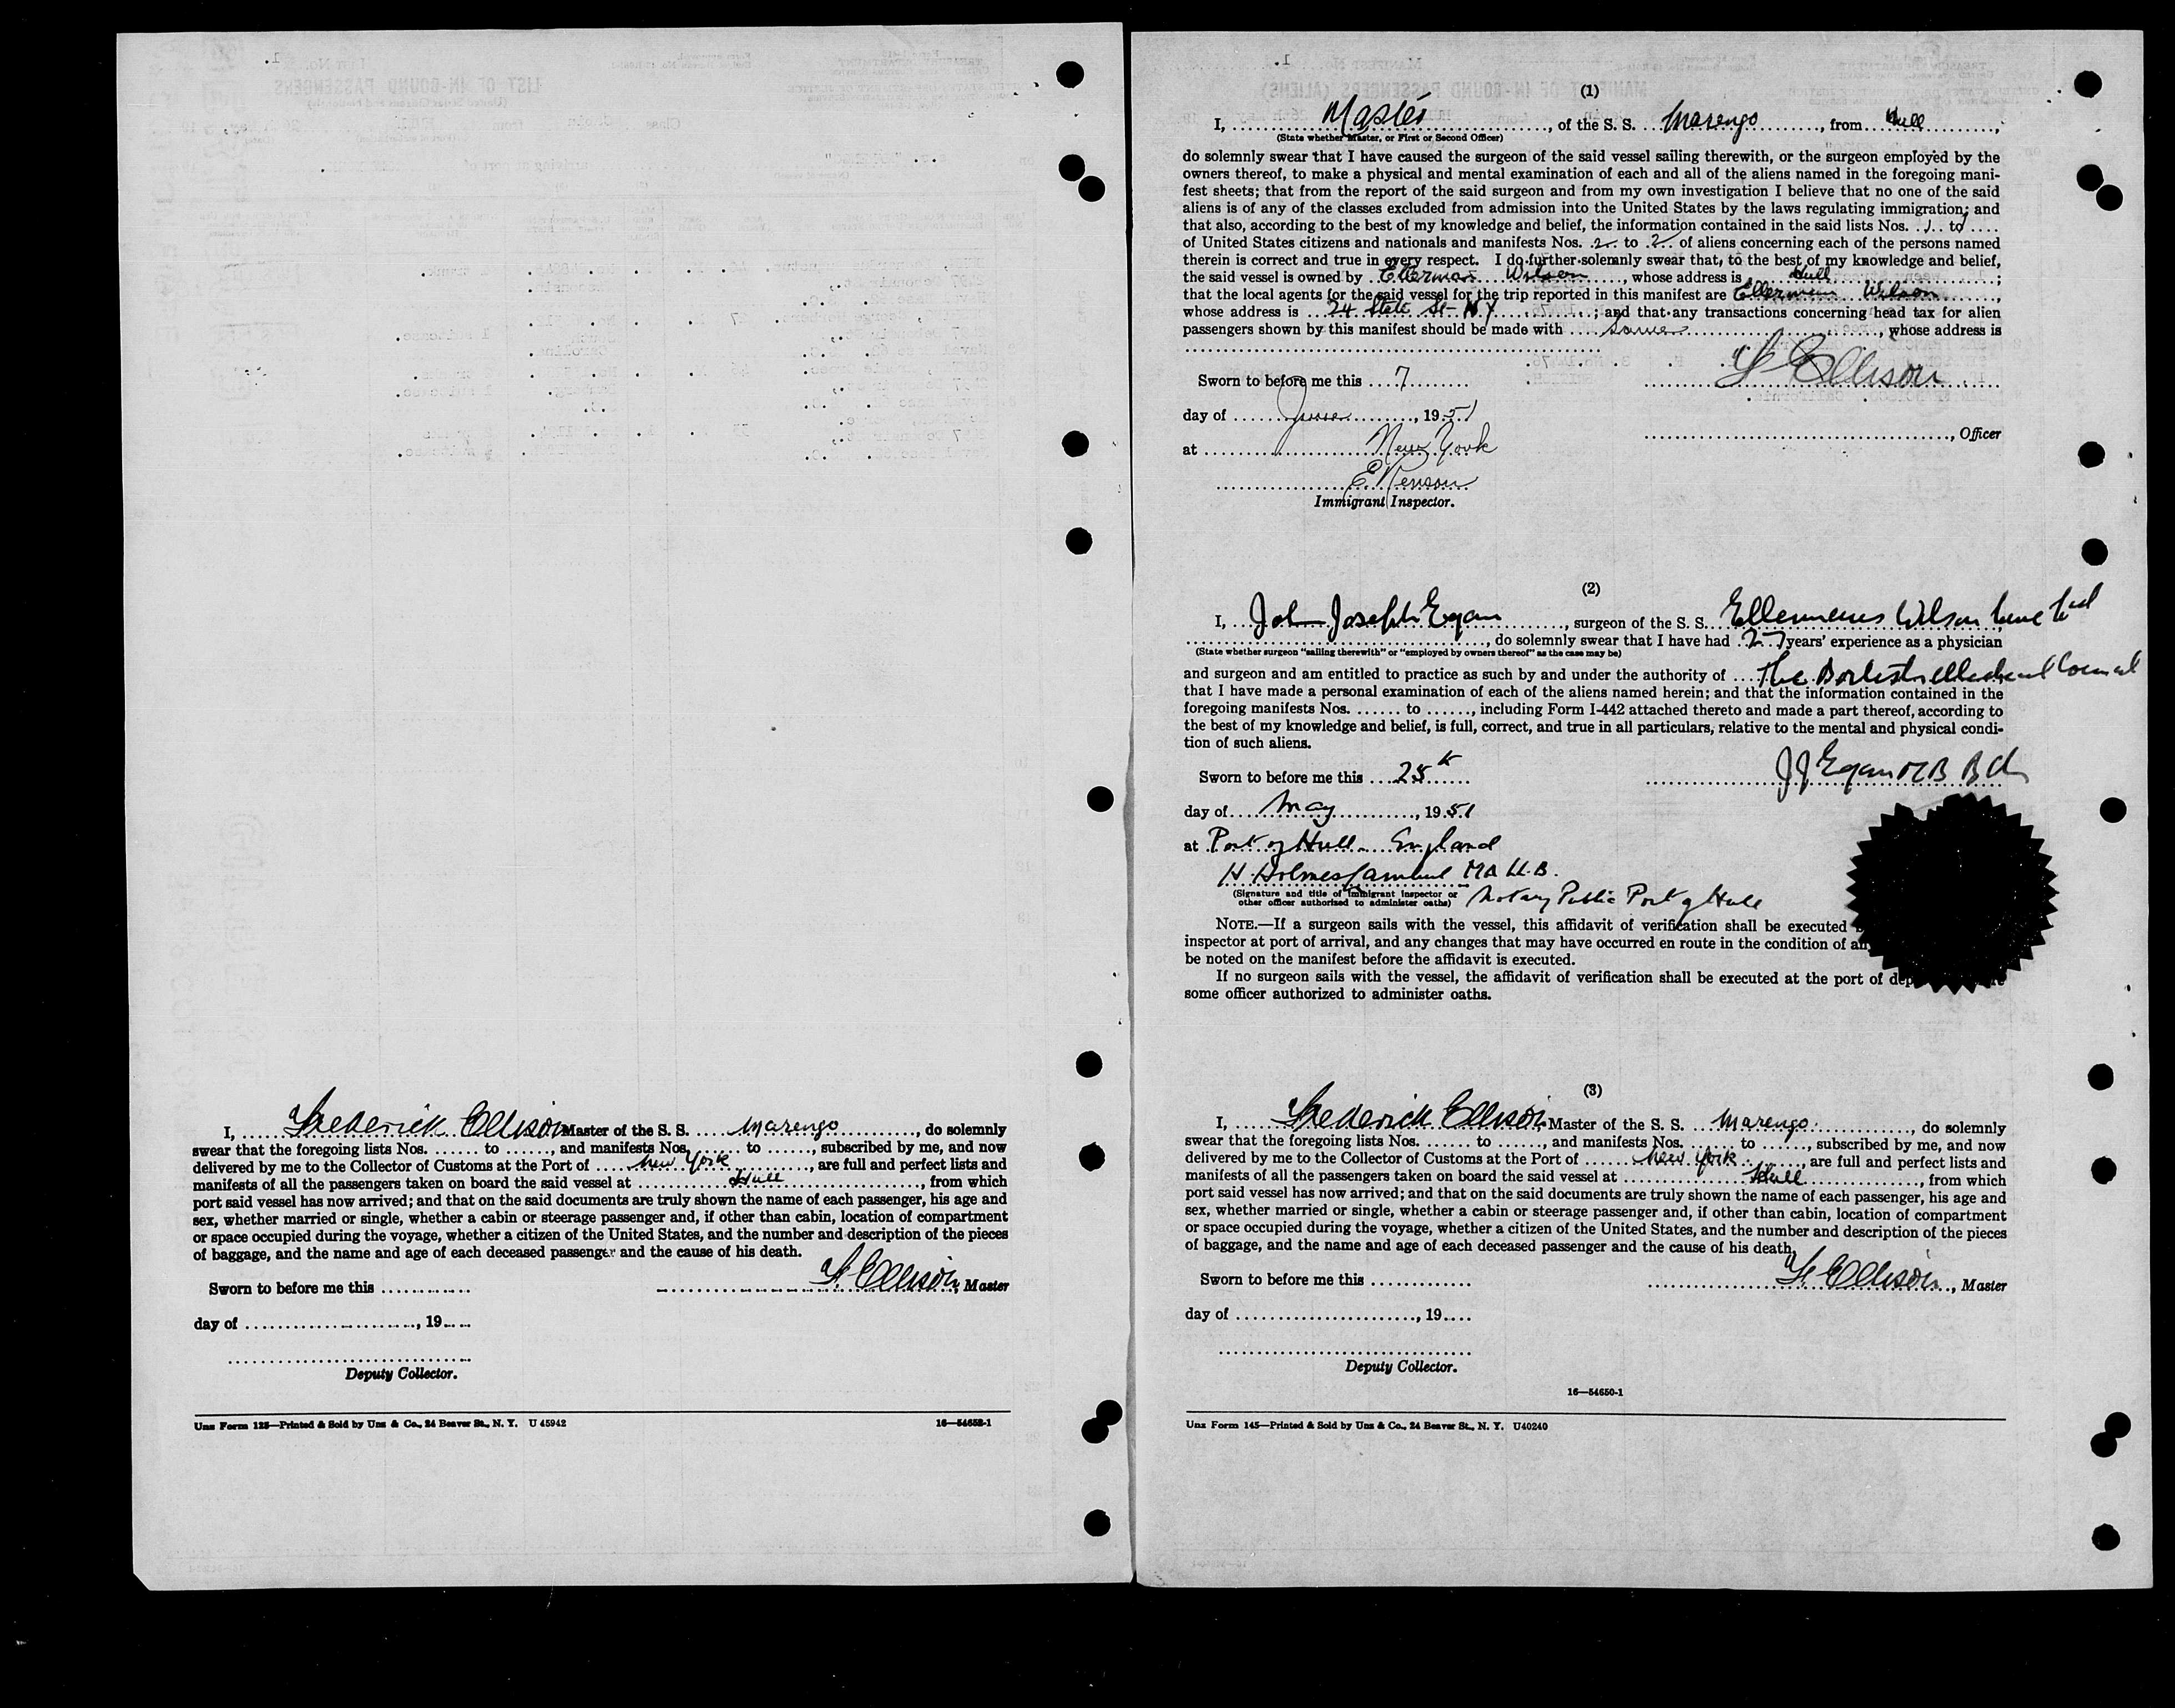 I, Frederick Ellison Master of the S. S. Marengo, do solemnly
swear that the foregoing lists Nos. ....... to ......, and manifests Nos. ...... to ......, subscribed by me, and now
delivered by me to the Collector of Customs at the Port of New York, are full and perfect lists and
manifests of all the passengers taken on board the said vessel at Hull, from which
port said vessel has now arrived; and that on the said documents are truly shown the name of each passenger, his age and
sex, whether married or single, whether a cabin or steerage passenger and, if other than cabin, location of compartment
or space occupied during the voyage, whether a citizen of the United States, and the number and description of the pieces
of baggage, and the name and age of each deceased passenger and the cause of his death.
Sworn to before me this ............ F. Ellison, Master
day of ......................, 19....
Deputy Collector.
Unz Form 125—Printed & Sold by Unz & Co., 24 Beaver St., N. Y. U 45942 16—54652-1
(1)
I, Master, of the S. S. Marengo, from Hull,
(State whether Master, or First or Second Officer)
do solemnly swear that I have caused the surgeon of the said vessel sailing therewith, or the surgeon employed by the
owners thereof, to make a physical and mental examination of each and all of the aliens named in the foregoing mani-
fest sheets; that from the report of the said surgeon and from my own investigation I believe that no one of the said
aliens is of any of the classes excluded from admission into the United States by the laws regulating immigration; and
that also, according to the best of my knowledge and belief, the information contained in the said lists Nos. 1 to 1
of United States citizens and nationals and manifests Nos. 2 to 2 of aliens concerning each of the persons named
therein is correct and true in every respect. I do further solemnly swear that, to the best of my knowledge and belief,
the said vessel is owned by Ellerman Wilson, whose address is Hull;
that the local agents for the said vessel for the trip reported in this manifest are Ellerman Wilson,
whose address is 24 State St- N.Y.; and that any transactions concerning head tax for alien
passengers shown by this manifest should be made with Same, whose address is
Sworn to before me this 7 F Ellison
day of June, 1951
, Officer
at New York
Immigrant Inspector.
(2)
I, John Joseph Egan, surgeon of the S. S. Ellermans Wilson Line Ltd
, do solemnly swear that I have had 27 years' experience as a physician
(State whether surgeon "sailing therewith" or "employed by owners thereof" as the case may be)
and surgeon and am entitled to practice as such by and under the authority of The British Medical Council
that I have made a personal examination of each of the aliens named herein; and that the information contained in the
foregoing manifests Nos. ...... to ......, including Form I-442 attached thereto and made a part thereof, according to
the best of my knowledge and belief, is full, correct, and true in all particulars, relative to the mental and physical condi-
tion of such aliens.
Sworn to before me this 25th J J Egan MB BCh
day of May, 1951
at Port of Hull. England
H. Holmes MA LL.B.
(Signature and title of immigrant inspector or
other officer authorized to administer oaths) Notary Public Port of Hull
NOTE.—If a surgeon sails with the vessel, this affidavit of verification shall be executed
inspector at port of arrival, and any changes that may have occurred en route in the condition of
be noted on the manifest before the affidavit is executed.
If no surgeon sails with the vessel, the affidavit of verification shall be executed at the port of
some officer authorized to administer oaths.
(3)
I, Frederick Ellison Master of the S. S. Marengo, do solemnly
swear that the foregoing lists Nos. ...... to ......, and manifests Nos. ...... to ......, subscribed by me, and now
delivered by me to the Collector of Customs at the Port of New York, are full and perfect lists and
manifests of all the passengers taken on board the said vessel at Hull, from which
port said vessel has now arrived; and that on the said documents are truly shown the name of each passenger, his age and
sex, whether married or single, whether a cabin or steerage passenger and, if other than cabin, location of compartment
or space occupied during the voyage, whether a citizen of the United States, and the number and description of the pieces
of baggage, and the name and age of each deceased passenger and the cause of his death.
Sworn to before me this ............ F. Ellison, Master
day of ......................, 19....
Deputy Collector.
16—54650-1
Unz Form 145—Printed & Sold by Unz & Co., 24 Beaver St., N. Y. U40240